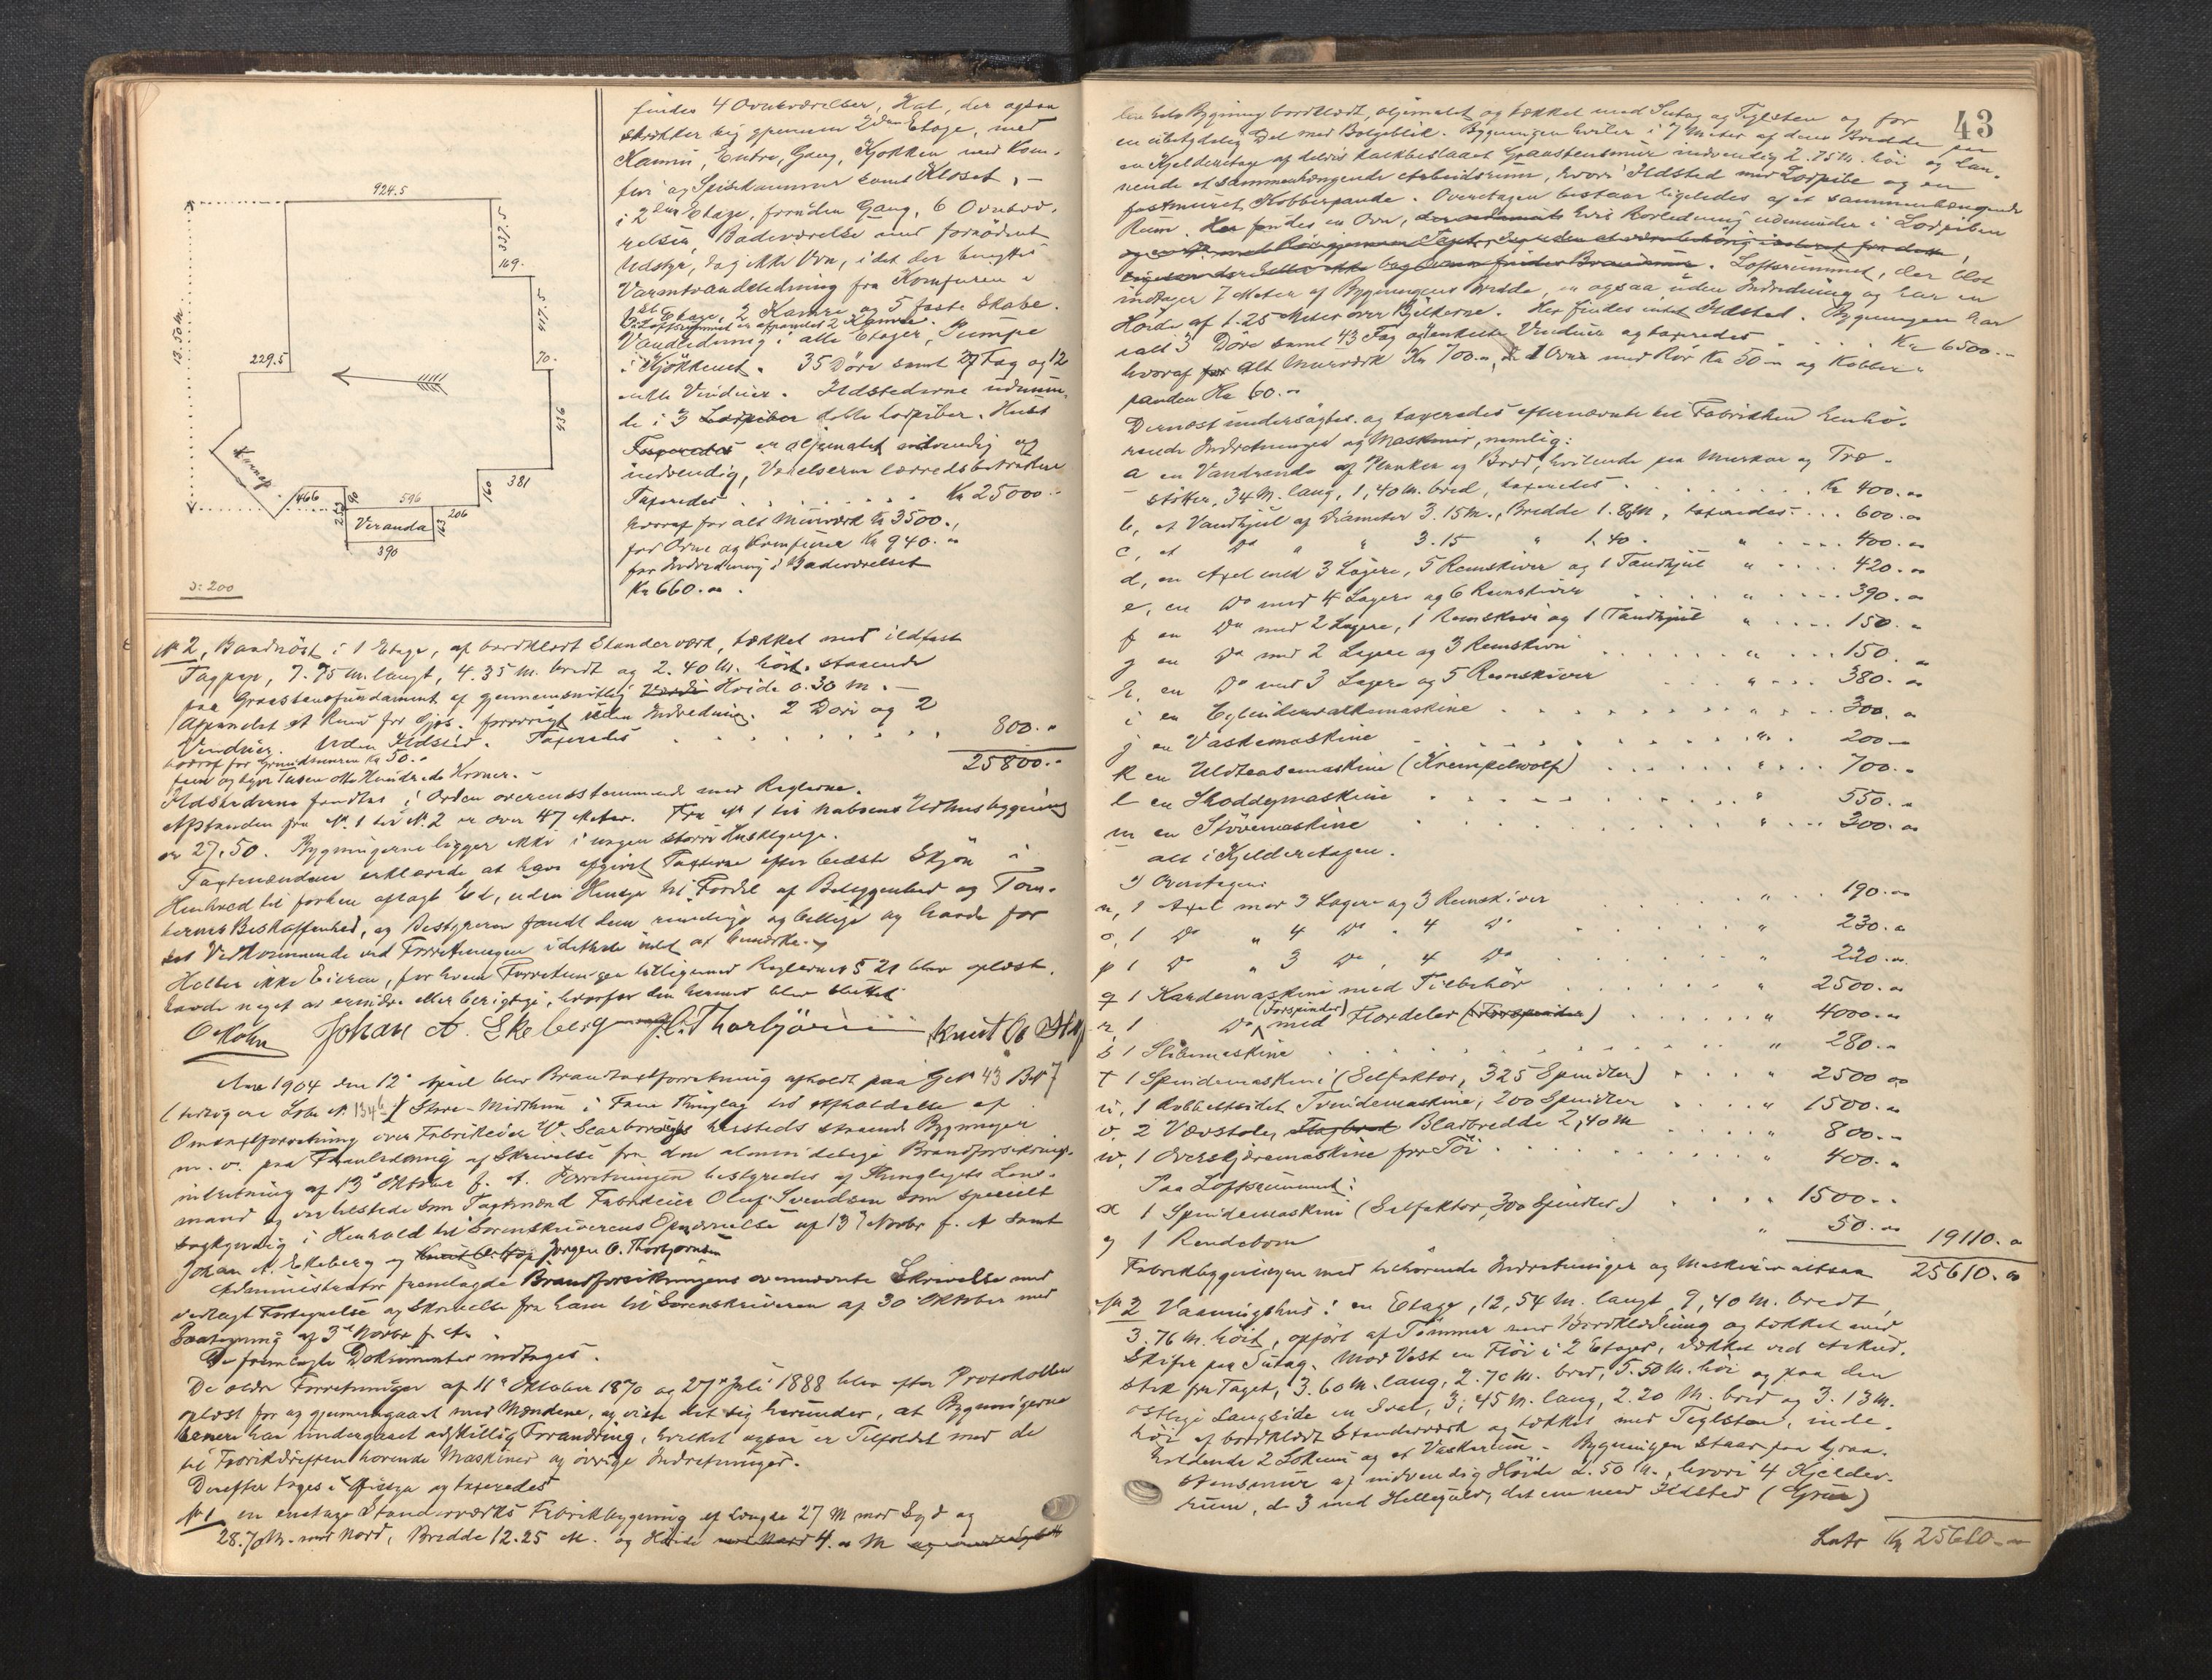 924.5
13.50 M.
352.5
169.
417.5
70.
229.5
415
381
160
Karnap.
466
90
596
206
253
Veranda
163
390
1:200
findes 4 Ovnsværelser, Hal, der ogsaa
strækker sig gjennem 2den Etage, med
Kamin, Entre, Gang, Kjøkken med Kom-
fur og Spisekammer samt Kloset, —
i 2den Etage, foruden Gang, 6 Ovnsvæ-
relser, Badeværelse med fornødent
Udstyr, dog ikke Ovn, idet der benyttes
Varmtvandsledning fra Komfuren i
1ste Etage, 2 Kamre og 5 faste Skabe.
Paa Loftsrummet er afpanelet 2 Kamre.
Vandledning i alle Etager, Pumpe
i Kjøkkenet. 35 Døre samt 27 Fag og 12
enkelte Vinduer. Ildstederne udmun-
de i 3 Lodpiber dobbelte Lodpiber. Huset
Taxeredes er oljemalet udvendig og
indvendig, Værelserne lærredsbetrukne
Taxeredes . . . . . . . Kr 25000.-
hvoraf for alt Murværk Kr 3500.,
for Ovne og Komfurer Kr 940.-
for Indredning i Badeværelset
Kr 660.-
No 2, Baadnøst i 1 Etage, af bordklædt Stenderværk, tækket med ildfast
Tagpap, 7.75 m. langt, 4.35 m. bredt og 2.40 M. høit, staaende
paa Graastensfundament af gjennemsnitlig Høide 0.30 m. —
Afpanelet et Rum for Gjøs. forøvrigt uden Indredning. 2 Døre og 2
Vinduer. Uden Ildsted. Taxeredes . . . . . . . 800.-
hvoraf for Grundmuren Kr 50.-
25800.-
fem og tyve Tusen otte Hundrede Kroner. -
Ildstederne fandtes i Orden overensstemmende med Reglerne.
Afstanden fra No. 1 til No. 2 er over 47 Meter. Fra No 1 til Naboens Udhusbygning
er 27.50. Bygningerne ligger ikke i nogen større Husklynge.
Taxtmændene erklærede at have afgivet Taxterne efter bedste Skjøn i
Henhold til forhen aflagt Ed, uden Hensyn til Fordel af Beliggenhed og Tom-
ternes Beskaffenhed, og Bestyreren fandt dem rimelige og billige og havde for
det Vedkommende ved Forretningen idethele intet at bemærke.
Heller ikke Eieren, for hvem Forretningen tilligemed Reglernes § 21 blev oplæst,
havde noget at erindre eller berigtige, hvorfor den hermed blev sluttet.
O. Kahn Johan A. Ekeberg J. C. Thorbjørnsen Knut O. Stop
Aar 1904 den 12te April blev Brandtaxtforretning afholdt paa G.No 43 B.No 7
(tidligere Løbe No. 134 b) Store-Midtun i Fane Thinglag til Afholdelse af
Omtaxtforretning over Fabrikeier W. Scarboroughs hersteds staaende Bygninger
m. v. paa Foranledning af Skrivelse fra den almindelige Brandforsikrings-
indretning af 13de Oktober f. A. Forretningen bestyredes af Thinglagets Lens-
mand og var tilstede som Taxtmænd Fabrikeier Oluf Svendsen som specielt
sagkyndig i Henhold til Sorenskriverens Opnævnelse af 13de Novbr f. A samt
Johan A. Ekeberg og Knut O. Stop Jørgen C. Thorbjørnsen
Administrator fremlagde Brandforsikringens ovennævnte Skrivelse med
vedlagt Fortegnelse og Skrivelse fra ham til Sorenskriveren af 30 Oktober med
Paategning af 3de Novbr f. A.
De fremlagte Dokumenter indtages.
De ældre Forretninger af 11te Oktober 1870 og 27de Juli 1888 blev efter Protokollen
oplæst for og gjennemgaaet med Mændene, og viste det sig herunder, at Bygningerne
senere har undergaaet adskillig Forandring, hvilket ogsaa er Tilfældet med de
til Fabrikdriften hørende Maskiner og øvrige Indretninger.
Derefter toges i Øiesyn og taxeredes
No 1 en enetages Stenderværks Fabrikbygning af Længde 27 M mod Syd og
28.70 M. mod Nord, Bredde 12.25 M. og Høide mod Nord 4.- M
43
den hele Bygning bordklædt, oljemalet og tækket med Sutag og Teglsten og for
en ubetydelig Del med Bølgeblik. Bygningen hviler i 7 Meter af dens Bredde paa
en Kjelderetage af delvis kalkbeslaaet Graastensmur indvendig 2.75 m. høi og dan-
nende et sammenhængende Arbeidsrum, hvori Ildsted med Lodpibe og en
fastmuret Kobberpande. Overetagen bestaar ligeledes af et sammenhængende
Rum. Her findes en Ovn, hvis Rørledning udmunder i Lodpiben
Loftsrummet, der blot
indtager 7 Meter af Bygningens Bredde, er ogsaa uden Indredning og har en
Høide af 1.25 Meter over Bjelkerne. Her findes intet Ildsted. Bygningen har
ialt 3 Døre samt 43 Fag og enkelte Vinduer og taxeredes . . . . Kr 6500.-
hvoraf for alt Murværk Kr 700.-, 1 Ovn med Rør Kr 50.- og Kobber-
panden Kr 60.-
Dernæst undersøgtes og taxeredes efternævnte til Fabrikken henhø-
rende Indretninger og Maskiner, nemlig:
a en Vandrende af Planker og Bord, hvilende paa Murkar og Træ-
støtter, 34 M. lang, 1,40 m. bred, taxeredes . . . . . . . Kr 400.-
b, et Vandhjul af Diameter 3.15 M., Bredde 1.88 M, taxeredes . . . 600.-
c, et Do " " 3.15 " 1.40 . " . . . . 400.-
d, en Axel med 3 Lagere, 5 Remskiver og 1 Tandhjul " . . . . 420.-
e, en Do med 4 Lagere og 6 Remskiver . . . . . " . . . . 390.-
f en Do med 2 Lagere, 1 Remskive og 1 Tandhjul " . . . . 150.-
g en Do med 2 Lagere og 3 Remskiver . . . . . " . . . 150.-
h, en Do med 3 Lagere og 5 Remskiver . . . . " . . . . 380.-
i en Cylindervalkemaskine . . . . . . . . " . . . 300.-
j en Vaskemaskine . . . . . . . . . . " . . . 200.-
k en Uldteasemaskine (Krempelwolf) . . . . . . " . . . 700.-
l en Shoddymaskine . . . . . . . . . " . . 550.-
m en Støvemaskine . . . . . . . . . . " . . 300.-
alt i Kjelderetagen.
I Overetagen:
n, 1 Axel med 3 Lagere og 3 Remskiver . . . . . " . . 190.-
o, 1 Do " 4 Do " 4 Do . . . . . " . . 230.-
p 1 Do " 3 Do , 4 Do . . . . . " . . 220.-
q 1 Kardemaskine med Tilbehør . . . . . . " . 2500.-
(Forspinder)
r 1 Do med Flordeler (Forspinder) . . . . . " . 4000.-
s 1 Slibemaskine . . . . . . . . . " . 280.-
t 1 Spindemaskine (Selfaktor, 325 Spindler) . . . . " . 2500.-
u, 1 dobbeltsidet Tvindemaskine, 200 Spindler . . . . " . 1500.-
v. 2 Vævstole, Bladbredde 2,40 m . . . . " . 800.-
w, 1 Overskjæremaskine for Tøi . . . . . . . " . 400.-
Paa Loftsrummet:
x 1 Spindemaskine (Selfaktor, 300 Spindler) . . . . " 1500.-
y 1 Rendebom " 50.- 19110.-
Fabrikbygningen med tilhørende Indretninger og Maskiner altsaa 25610.-
No 2 Vaaningshus: en Etage, 12,54 M. langt, 9,40 m. bredt,
3.76 m. høit, opført af Tømmer med Bordklædning og tækket med
Skifer paa Sutag. Mod Vest en Fløi i 2 Etager, dækket ved Afskud-
stak fra Taget, 3.60 m. lang, 2.70 m. bred, 5.50 m. høi og paa den
østlige Langside en Sval, 3,45 m. lang, 2.20 M. bred og 3.13 m.
høi af bordklædt Stenderværk og tækket med Teglsten, inde-
holdende 2 Lokum og et Vaskerum. Bygningen staar paa Graa-
stensmur af indvendig Høide 2.50 m., hvori 4 Kjelder-
rum, de 3 med Hellegulv, det ene med Ildsted (Grue)
Latr Kr 25610.-